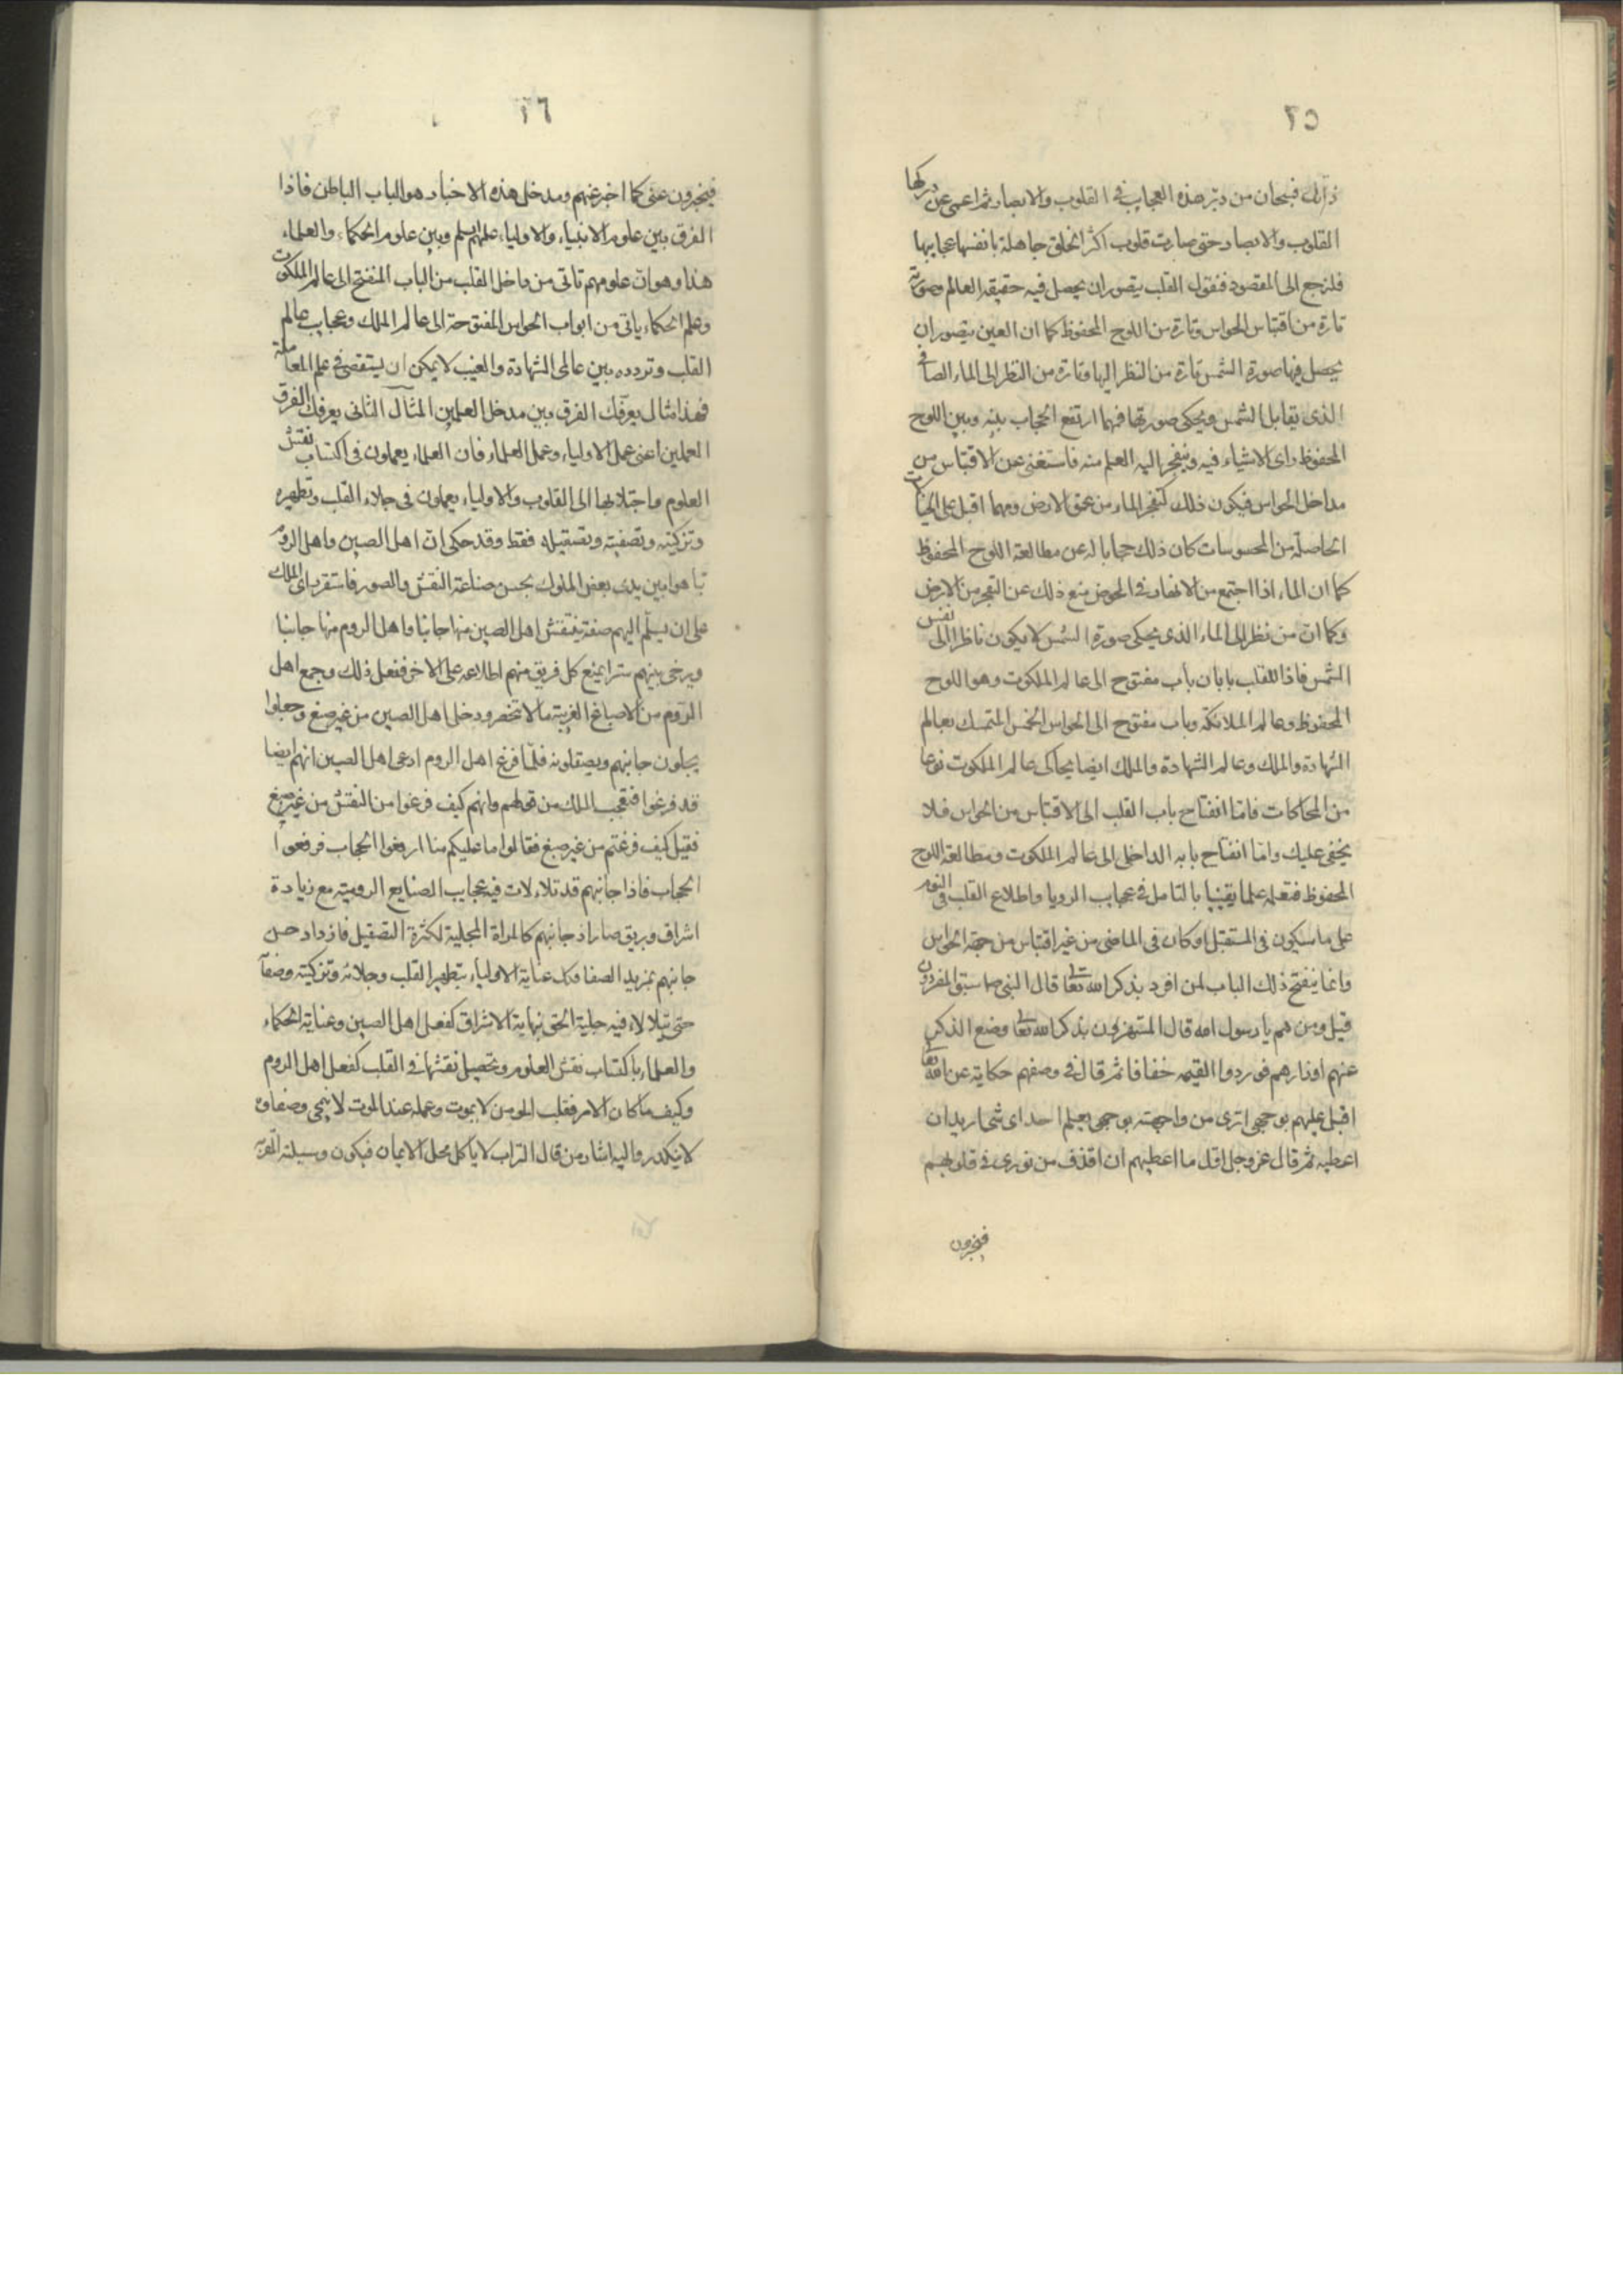 ٢٥
ذلك فسبحان من دبر هذه العجايب في القلوب والابصار ثم اعمى عن دركها
القلوب والابصار حتى صارت قلوب اكثر الخلق جاهلة بانفسها وعجايبها
فلنرجع الى المقصود فنقول القلب يتصور ان يحصل فيه حقيقة العالم وصورته
تارة من اقتباس الحواس وتارة من اللوح المحفوظ كما ان العين يتصور ان
يحصل فيها صورة الشمس تارة من النظر اليها وتارة من النظر الى الماء الصافي
الذي يقابل الشمس ويحكى صورتها فمهما ارتفع الحجاب بينه وبين اللوح
المحفوظ راى الاشياء فيه وينفجر اليه العلم منه فاستغنى عن الاقتباس من
مداخل الحواس فيكون ذلك كتفجر الماء من عمق الارض ومهما اقبل على الخيالات
الحاصلة من المحسوسات كان ذلك حجابا له عن مطالعة اللوح المحفوظ
كما ان الماء اذا اجتمع من الانهار في الحوض منع ذلك عن التفجر من الارض
وكما ان من نظر الى الماء الذي يحكى صورة الشمس لا يكون ناظرا الى نفس
الشمس فاذا للقلب بابان باب مفتوح الى عالم الملكوت وهو اللوح
المحفوظ وعالم الملائكة وباب مفتوح الى الحواس الخمس المتمسك بعالم
الشهادة والملك وعالم الشهادة والملك ايضا يحاكى عالم الملكوت نوعا
من المحاكات فاما انفتاح باب القلب الى الاقتباس من الحواس فلا
يخفى عليك واما انفتاح بابه الداخل الى عالم الملكوت ومطالعة اللوح
المحفوظ فتعلمه علما يقينيا بالتامل في عجايب الرويا واطلاع القلب في النوم
على ما سيكون في المستقبل او كان في الماضى من غير اقتباس من جهة الحواس
وانما ينفتح ذلك الباب لمن افرد بذكر الله تعالى قال النبى صم سبق المفردون
قيل ومن هم يا رسول الله قال المستهترون بذكر الله تعالى وضع الذكر
عنهم اوزارهم فوردوا القيمه خفافا ثم قال في وصفهم حكاية عن الله تعالى
اقبل عليهم بوجهى اترى من واجهته بوجهى يعلم احد اى شئ اريد ان
اعطيه ثم قال عز وجل اقل ما اعطيهم ان اقذف من نورى في قلوبهم
فيخبرون
٢٦
فيخبرون عنى كما اخبر عنهم ومدخل هذه الاخبار هو الباب الباطن فاذا
الفرق بين علوم الانبياء والاولياء عليهم سلم وبين علوم الحكماء والعلماء
هذا وهو ان علومهم تاتى من داخل القلب من الباب المنفتح الى عالم الملكوت
وعلم الحكماء ياتى من ابواب الحواس المفتوحة الى عالم الملك وعجايب عالم
القلب وتردده بين عالمى الشهادة والغيب لا يمكن ان يستقصى في علم المعاملة
فهذا مثال يعرفك الفرق بين مدخل العلمين المثال الثانى يعرفك الفرق
العملين اعنى عمل الاولياء وعمل العلماء فان العلماء يعملون في اكتساب نقش
العلوم واجتلابها الى القلوب والاولياء يعملون في جلاء القلب وتطهيره
وتزكيته وتصفيته وتصقيله فقط وقد حكى ان اهل الصين واهل الروم
تباهوا بين يدى بعض الملوك بحسن صناعة النقش والصور فاستقر راى الملك
على ان يسلم اليهم صفة ينقش اهل الصين منها جانبا واهل الروم منها جانبا
ويرخى بينهم سترا يمنع كل فريق منهم اطلاعه على الاخر ففعل ذلك وجمع اهل
الروم من الاصباغ الغريبة مالا تنحصر ودخل اهل الصين من غير صبغ وجعلوا
يجلون جانبهم ويصقلونه فلما فرغ اهل الروم ادعى اهل الصين انهم ايضا
قد فرغوا فتعجب الملك من قولهم وانهم كيف فرغوا من النقش من غير صبغ
فقيل كيف فرغتم من غير صبغ فقالوا ما عليكم منا ارفعوا الحجاب فرفعوا
الحجاب فاذا جانبهم قد تلاءلات فيه عجايب الصنايع الرومية مع زيادة
اشراف وبريق صار اذ جانبهم كالمراة المجلية لكثرة التصقيل فازداد حسن
جانبهم بمزيد الصفا فكك عناية الاولياء بتطهير القلب وجلائه وتزكيته وصفآ
حتى يتلالاء فيه جلية الحق بنهاية الاشراق كفعل اهل الصين وعناية الحكماء
والعلماء باكتساب نقش العلوم وتحصيل نقشها في القلب كفعل اهل الروم
وكيف ما كان الامر فقلب المومن لا يموت وعمله عند الموت لا ينمحى وصفاوه
لا يتكدر واليه اشار من قال التراب لا ياكل محل الايمان فيكون وسيلة القربة